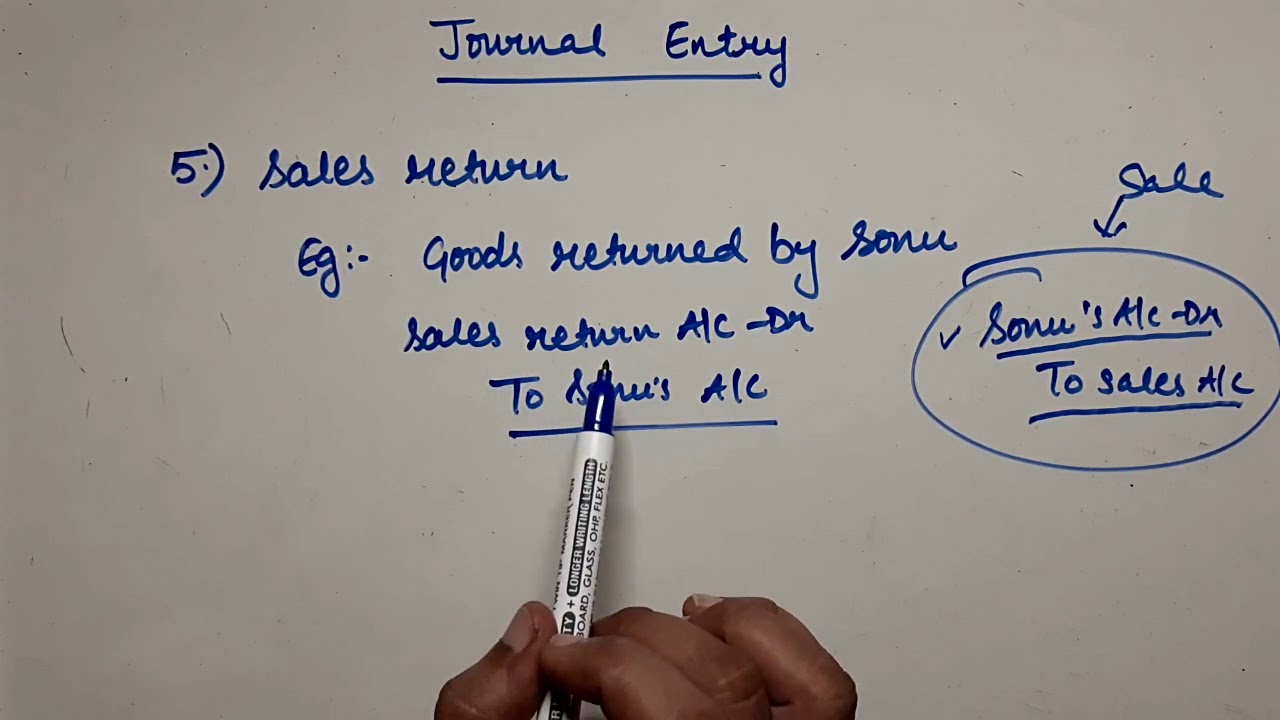 Journal Entry
5.) Sales return
Eg:- Goods returned by Sonu
Sales return A/C -Dr
To Sonu's A/C
Sale
✓ Sonu's A/C -Dr
To Sales A/C
+ LONGER WRITING LENGTH
BOARD, GLASS, OHP, FLEX ETC.